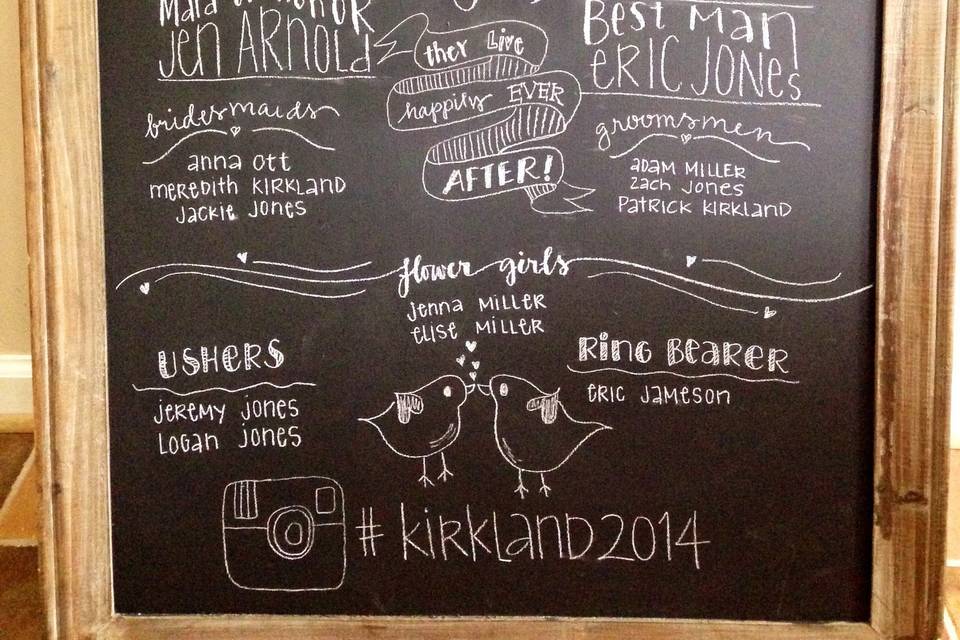 Maid of Honor
Jen Arnold
they Live
happily EVER
AFTER!
Best Man
Eric Jones
bridesmaids
anna ott
meredith Kirkland
Jackie Jones
groomsmen
Adam Miller
Zach Jones
Patrick Kirkland
flower girls
Jenna Miller
Elise Miller
USHERS
Jeremy Jones
Logan Jones
Ring Bearer
Eric Jameson
#kirkland2014